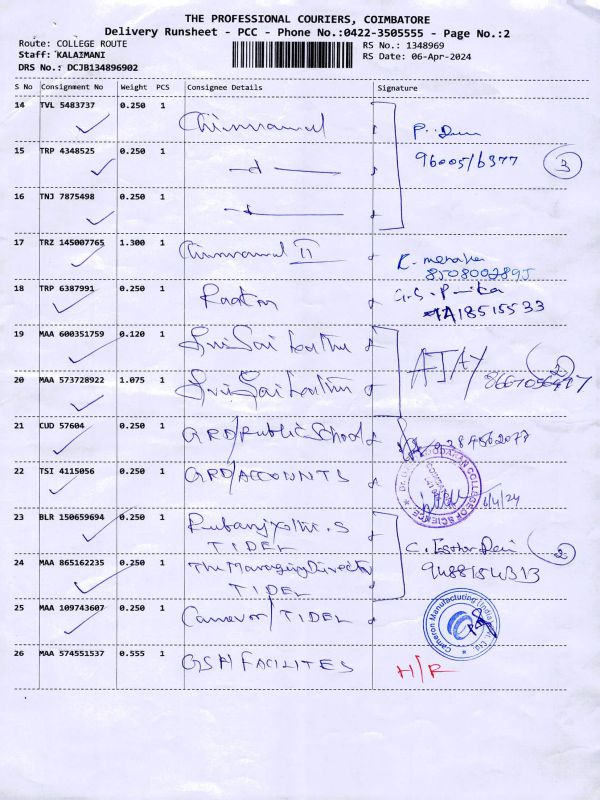 THE PROFESSIONAL COURIERS, COIMBATORE
Delivery Runsheet - PCC - Phone No.:0422-3505555 - Page No.:2
Route: COLLEGE ROUTE
RS No.: 1348969
Staff: KALAIMANI
RS Date: 06-Apr-2024
DRS No.: DCJB134896902
S No Consignment No Weight PCS Consignee Details Signature
14 TVL 5483737 0.250 1
P.
15 TRP 4348525 0.250 1
3
16 TNJ 7875498 0.250 1
17 TRZ 145007765 1.300 1 II
K. menaka
8508002895
18 TRP 6387991 0.250 1
18515533
19 MAA 600351759 0.120 1 Sri Sai
AJAY
2
20 MAA 573728922 1.075 1 Sri Sai
21 CUD 57604 0.250 1 GRD/Public School
22 TSI 4115056 0.250 1 GRD/ACCOUNTS
COLLEGE OF SCIENCE
6/4/24
23 BLR 150659694 0.250 1
TIDEL
2
24 MAA 865162235 0.250 1 The Managing Director
TIDEL
9488154313
25 MAA 109743607 0.250 1 Cameron/TIDEL
Cameron Manufacturing (India) Pvt. Ltd.
26 MAA 574551537 0.555 1 GSH FACILITES
H/R